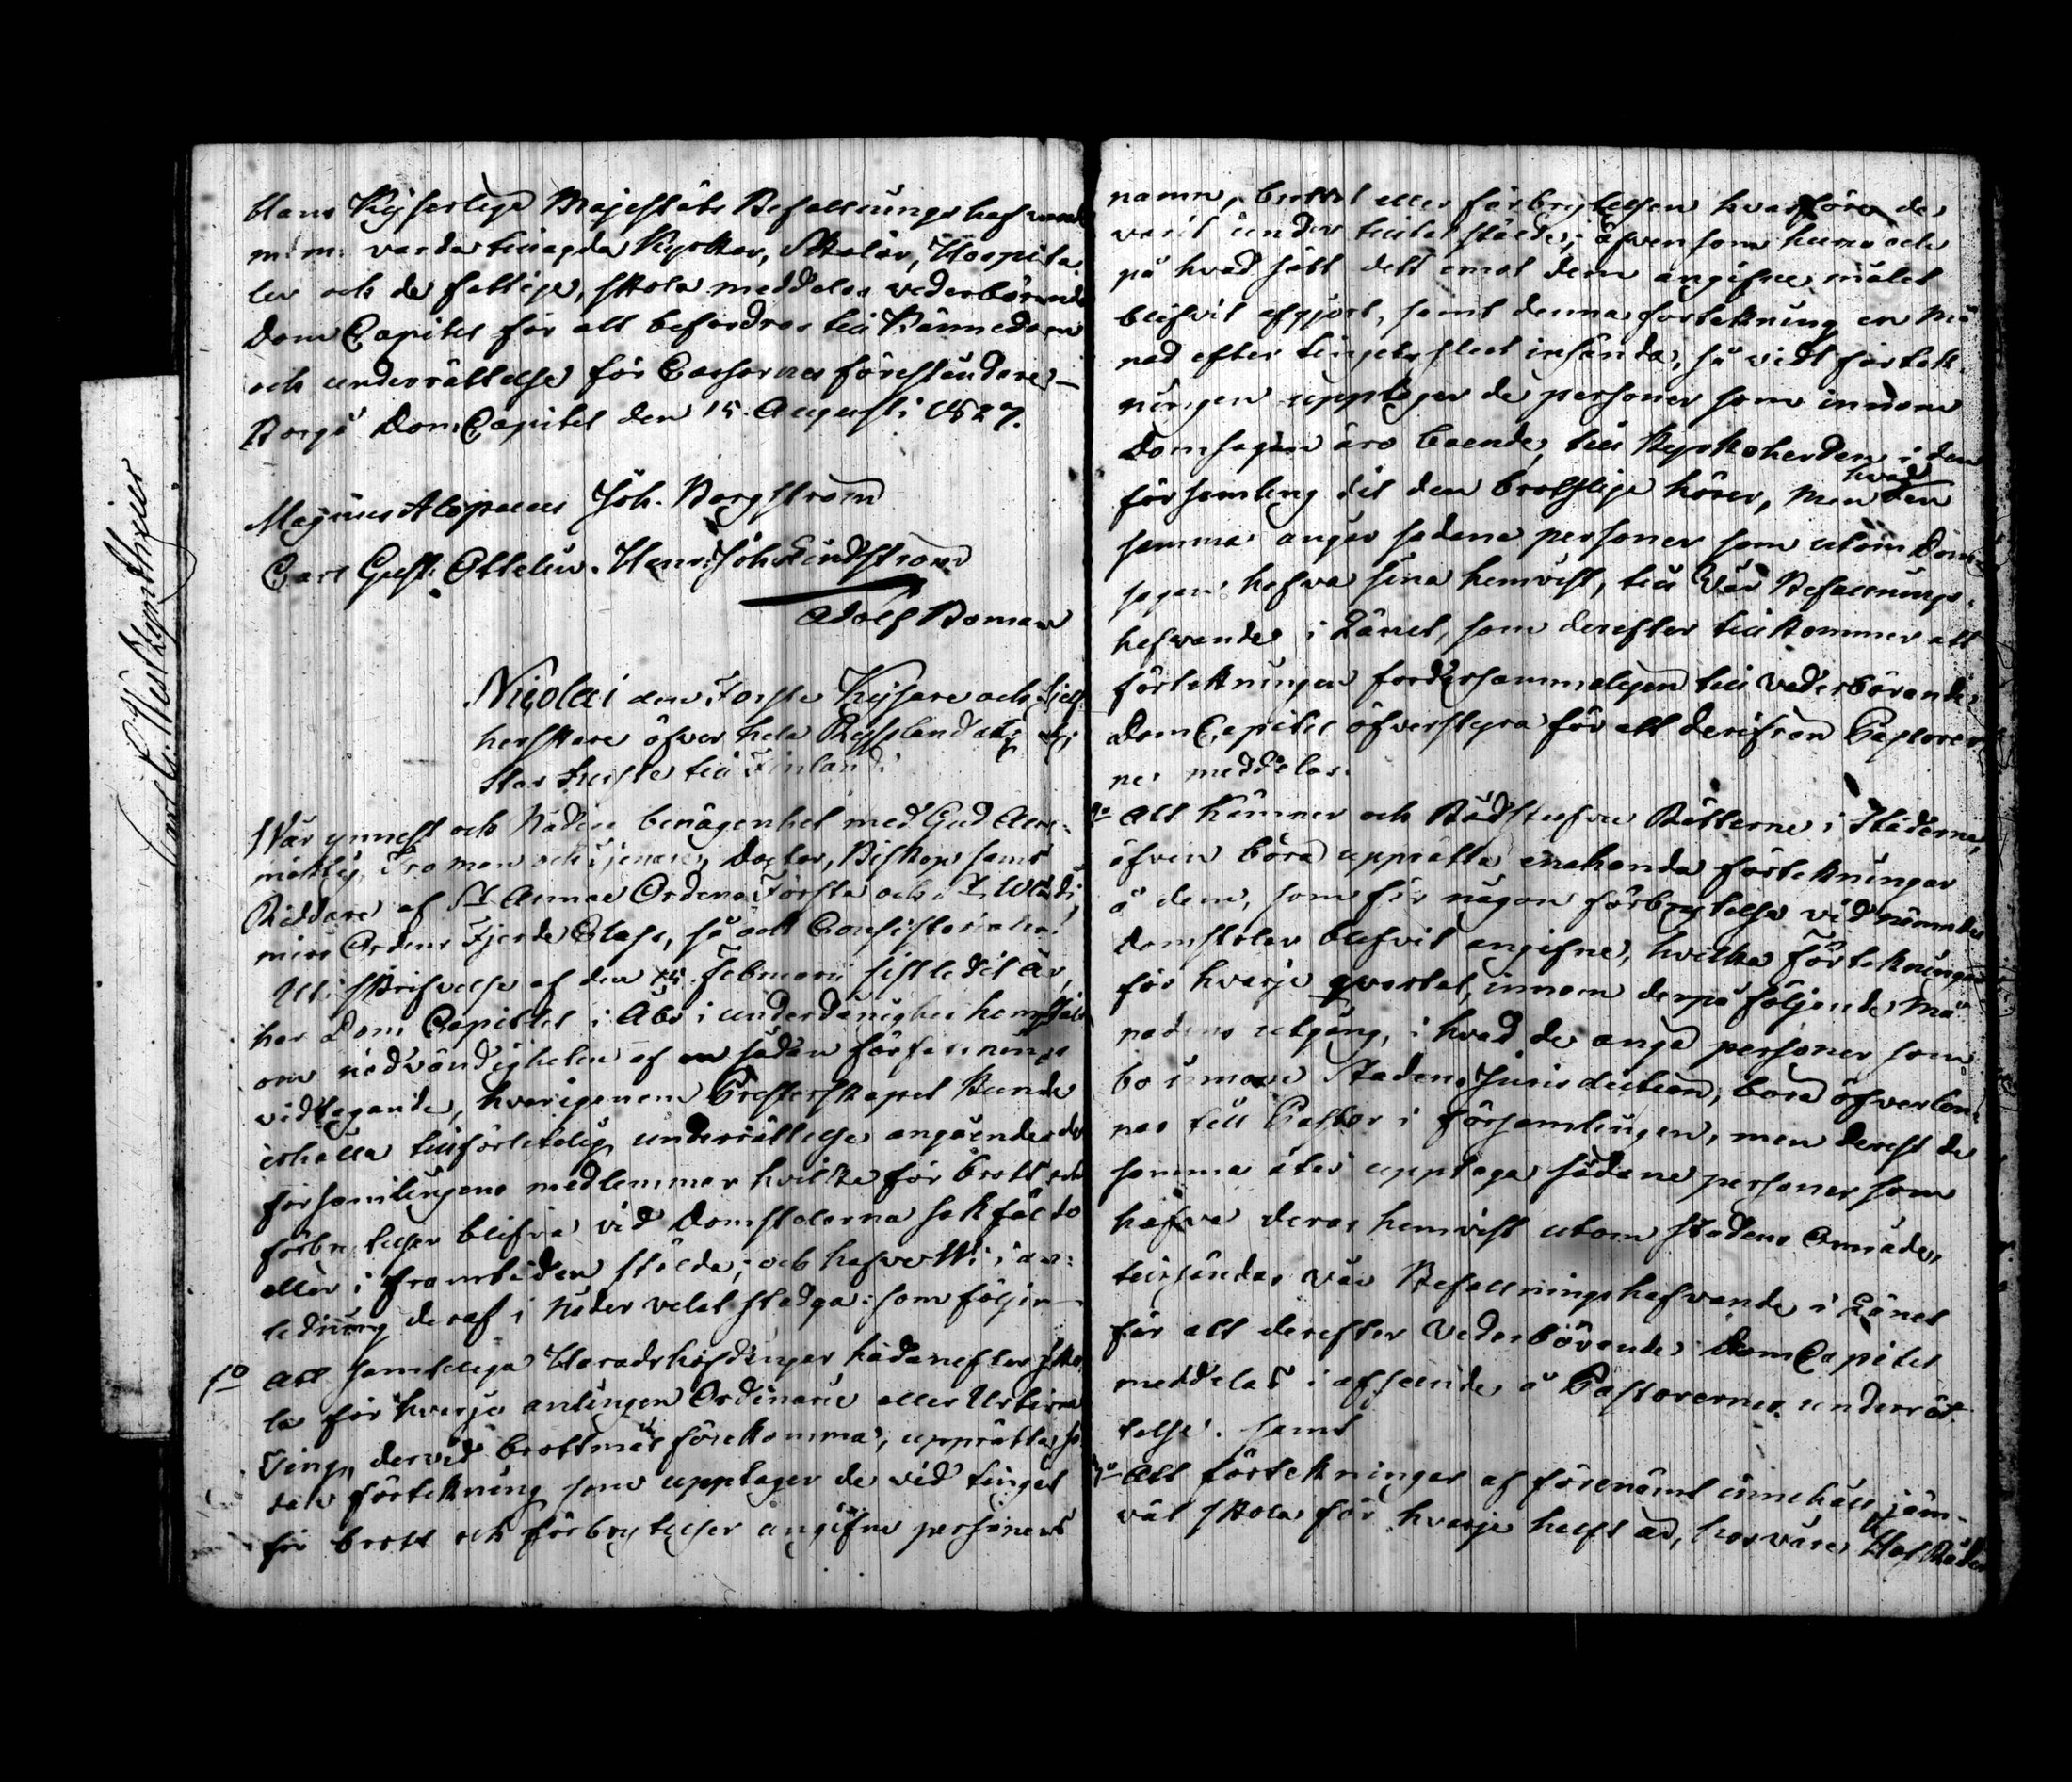 Hans Kejserliga Majestäts Befallningshafvande
m: m: varda tillagda Kyrkor, Skolor, Hospita
ler och de fattige, skola meddelas vederbörande
Dom Capitel för att befordras till Kännedom
och underrättelse för Cassornas föreståndare.—
Borgå Dom Capitel den 15. Augusti 1827.
Magnus Alopaeus Joh. Borgström
Carl Gust. Ottelin. Henr: Joh. Lindström
Adolf Boman
Nicolai den Förste Kejsare och Sjelf
herskare öfver hela Ryssland etc; etc;
Stor Furste till Finland:
Vår ynnest och Nådiga benägenhet med Gud Alls-
mäktig, Tro man och tjenare, Doctor, Biskop samt
Riddare af St Annae Ordens Första och St Wladi
mirs Ordens Fjerde Class, så ock Consistoriales!
Uti skrifvelse af den 14. Februarii sistledit År,
har Dom Capitlet i Åbo i underdånighet hemställt
om nödvändigheten af en sådan författnings
vidtagande, hvarigenom Presterskapet kunde
erhålla tillförlitelig underrättelse angående de
församlingens medlemmar hvilka för brott och
förbrytelser blifva vid Domstolarna sakfälde
eller i framtiden stälda; och hafve Wi i an-
ledning deraf i Nåder velat stadga: som följer—
1o Att samtelige Häradshöfdingar hädanefter sko
la för hvarje antingen Ordinarie eller Urtima
Ting, dervid brottmål förekomma, upprätta så
dan förtekning som upptager de vid tinget
för brott och förbrytelser angifne personers
namn, brottet eller förbrytelsen hvarföre de
varit under tilltal stälde; äfvensom huru och
på hvad sätt dett emot dem angifne målet
blifvit afgjort, samt denna förtekning en Må
nad efter tingets slut insända, så vidt förtek-
ningen upptager de personer som innom
Domsagan äro boende, till Kyrkoherden i den
hvad
församling dit den brottslige hörer, men den
samma angår sådana personer som utom Dom-
sagan hafva sina hemvist, till Vår Befallnings-
hafvande i Länet, som derefter tillkommer att
förtekningen fordersammeligen till Vederbörande
Dom Capitel öfverstyra för att derifrån Pastorer
ne meddelas.
2o Att Kämner och Rådstufvu Rätterne i Städerna,
äfven böra upprätta enahanda förtekningar
å dem, som för någon förbrytelse vid nämnde
domstolar blifvit angifne, hvilka förtekningar
för hvarje qvartal, innom derpå följande Må
nadens utgång, i hvad de angå personer som
bo innom Stadens Jurisdiction, böra öfverlem-
nas till Pastor i församlingen, men derest de
samma åter upptaga sådane personer som
hafva deras hemvist utom stadens område,
tillsändas vår Befallningshafvande i Länet
för att derefter Vederbörande Dom Capitel
meddelas i afseende å Pastorernes underrät-
telse. samt
3o Att förtekningar af förenämt innehåll jäm-
väl skola för hvarje helft år, hos våra Hof Rätter